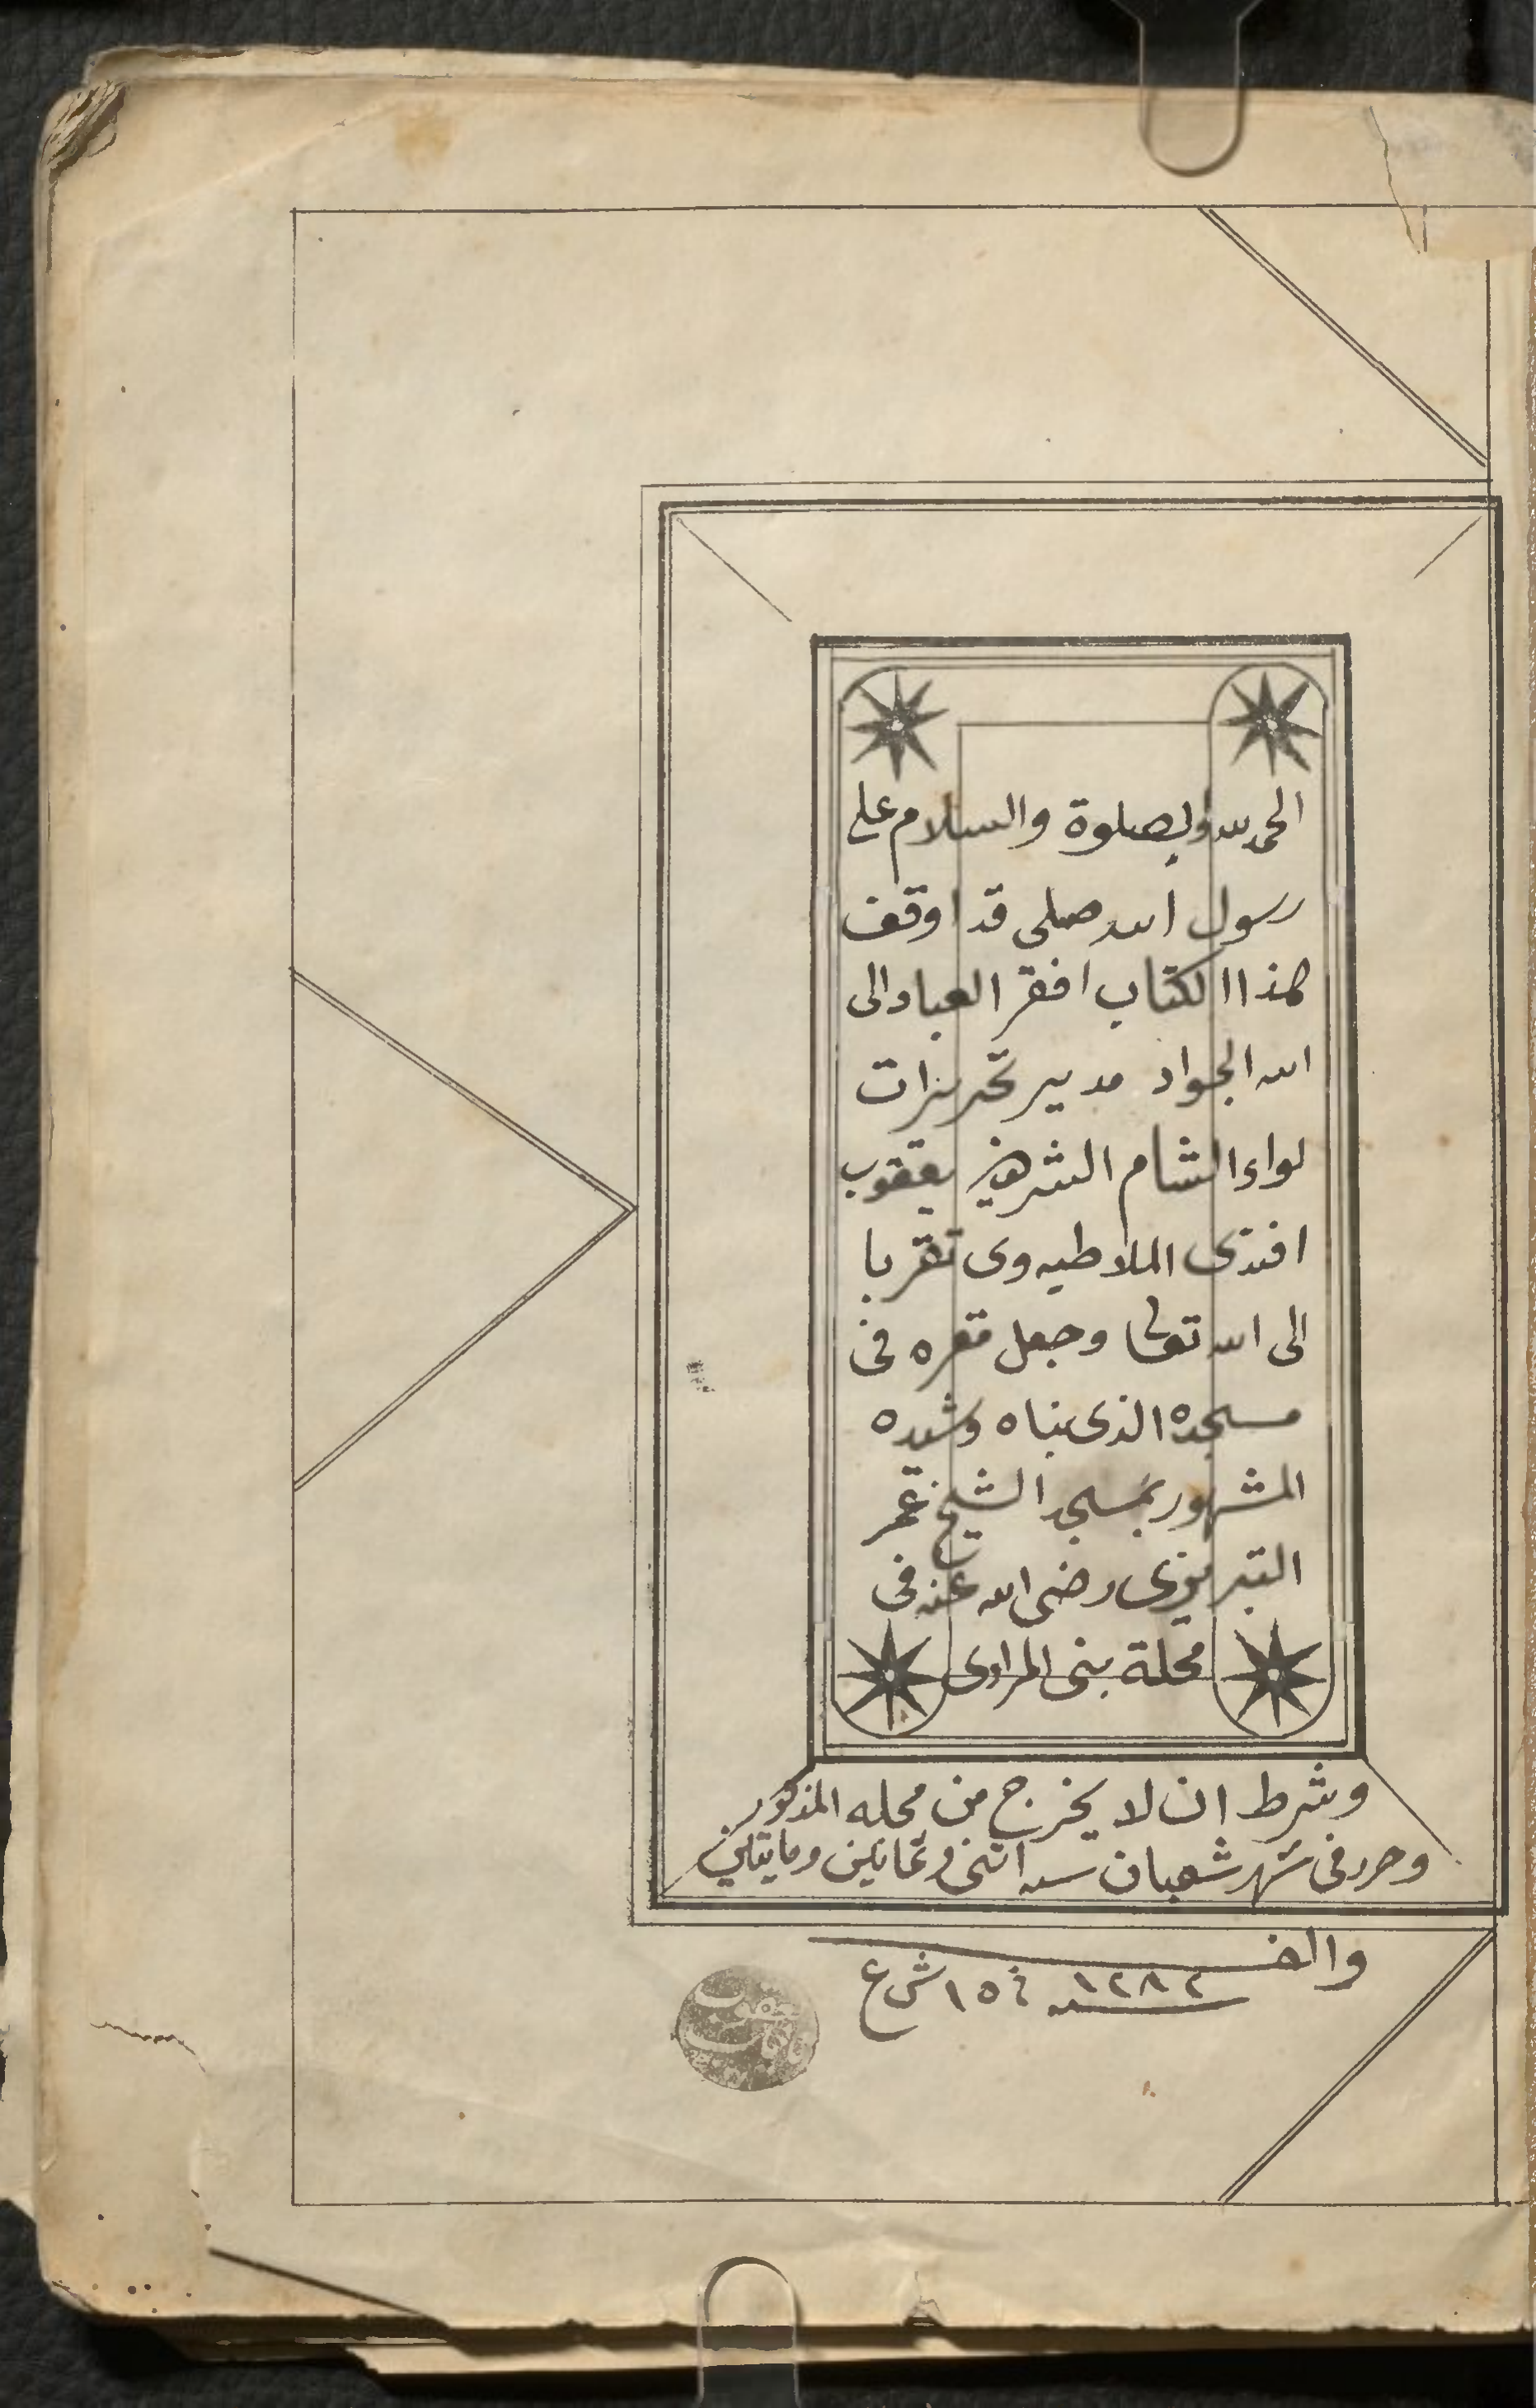 الحمد لله والصلوة والسلام على
رسول الله صلى قد اوقف
هذا الكتاب افقر العباد الى
الله الجواد مدير تحريرات
لواء الشام الشريف يعقوب
افندى الملاطيه وى تقربا
الى الله تعالى وجعل مقره فى
مسجده الذى بناه وشيده
المشهور بمسجد الشيخ عمر
التبريزى رضى الله عنه فى
محلة بنى المراوى
وشرط ان لا يخرج من محله المذكور
وحرر فى شهر شعبان سنه اثنى وثمانين ومايتين
والف
سنه ١٢٨٢ فى ١٥ ش